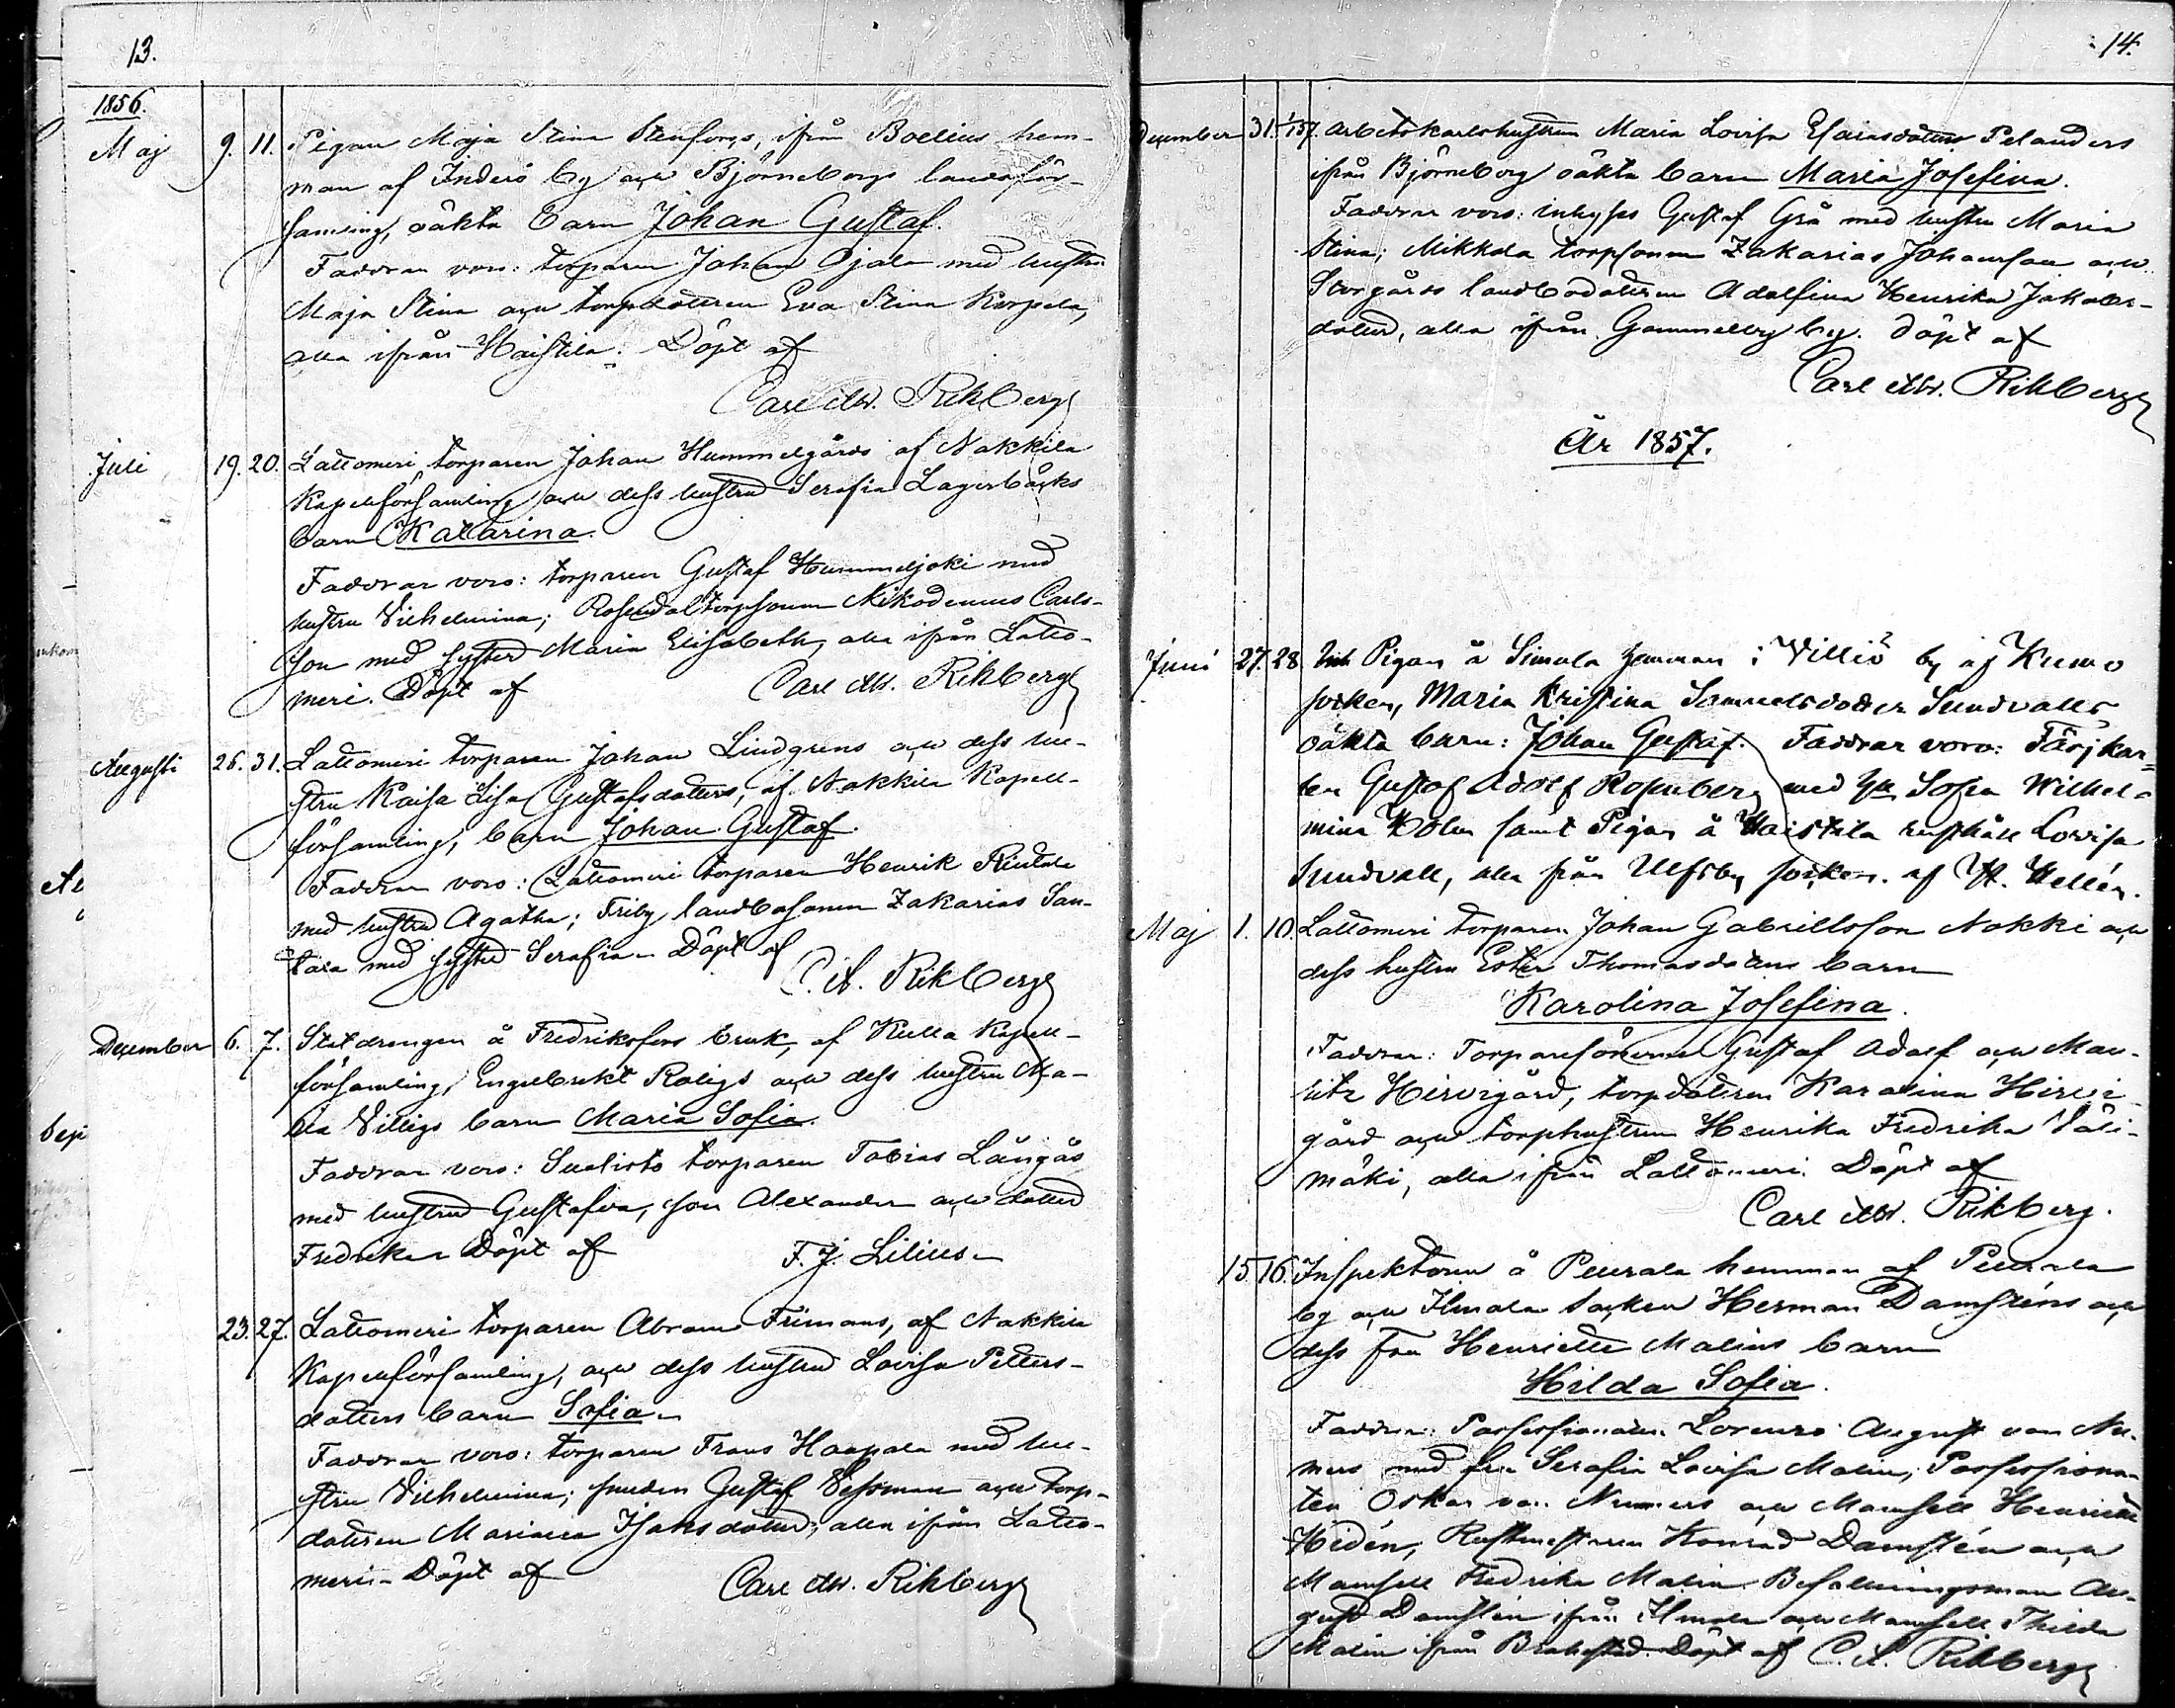 13.
1856.
Maj 9. 11. Pigan Maja Stina Stenfors, ifrån Boelius hem-
man af Inderö by och Björneborgs landsför-
samling, oäkta barn Johan Gustaf.
Faddrar voro: torparen Johan Ojala med hustru
Maja Stina och torpdottren Eva Stina Korpela,
alla ifrån Haistila. Döpt af
Carl Rikberg
Juli 19. 20. Lattomeri, torparen Johan Hummelgårds af Nakkila
Kapellförsamling och dess hustru Serafia Lagerbäcks
barn Katarina.
Faddrar voro: torparen Gustaf Hummeljoki med
hustru Vilhelmina; Rosendal torpsonen Nikodemus Carls-
son med syster Maria Elisabeth, alla ifrån Latto-
meri. Döpt af Carl Rikberg
Augusti 26. 31. Lattomeri torparen Johan Lindgrens och dess hu-
stru Kaisa Lisa Gustafsdotters, af Nakkila Kapell-
församling, barn Johan Gustaf.
Faddrar voro: Lattomeri torparen Henrik Rintala
med hustru Agatha; Friby landbosonen Zakarias San-
tara med syster Serafia. Döpt af
C. A. Rikberg
December 6. 7. Statdrengen å Fredriksfors bruk, af Kulla Kapell-
församling, Engelbrekt Roligs och dess hustru Ma-
ria Villigs barn Maria Sofia.
Faddrar voro: Suolisto torparen Tobias Långås
med hustru Gustafva, son Alexander och dotter
Fredrika. Döpt af F. J. Lilius.
23. 27. Lattomeri torparen Abram Frimans, af Nakkila
Kapellförsamling, och dess hustru Lovisa Petters-
dotters barn Sofia.
Faddrar voro: torparen Frans Haapala med hu-
stru Vilhelmina; smeden Gustaf Vessman och torp-
dottren Mariana Isaksdotter; alla ifrån Latto-
meri. Döpt af Carl Rikberg
14.
December 31. 1/1 57. Arbetskarlshustrun Maria Lovisa Esaiasdotters Pelanders
ifrån Björneborg oäkta barn Maria Josefina.
Faddrar voro: inhyses Gustaf Grå med hustru Maria
Stina; Mikkola torpsonen Zakarias Johansson och
Storgårds landbodottren Adolfina Henrika Jakobs-
dotter, alla ifrån Gammelby by. Döpt af
Carl Rikberg
År 1857.
Juni 27. 28. Pigan å Simola hemman i Villiö by af Kumo
socken, Maria Kristina Samuelsdotter Sundvalls
oäkta barn: Johan Gustaf. Faddrar voro: Färjkar-
len Gustaf Adolf Rosenberg med Sofia Wilhel-
mina Holm samt Pigan å Haistila rusthåll Lovisa
Sundvall, alla från Ulfsby socken. af H. Hellén.
Maj 1. 10. Lattomeri torparen Johan Gabrielsson Nokki och
dess hustru Ester Thomasdotters barn
Karolina Josefina.
Faddrar: Torparesönerne Gustaf Adolf och Mau-
ritz Hirvigård, torpdottren Karolina Hirvi-
gård och torphustrun Henrika Fredrika Väli-
mäki, alla ifrån Lattomeri. Döpt af
Carl Rikberg.
15. 16. Inspektoren å Peurala hemman af Peurala
by och Ilmola socken Herman Damsténs och
dess fru Henriette Malins barn
Hilda Sofia.
Faddrar: Possessionaten Lorenzo August von Nu-
mers med fru Serafia Lovisa Malin; Possessiona-
ten Oskar von Numers och Mamsell Henriette
Hidén, Rustmästaren Konrad Damstén och
Mamsell Fredrika Malin. Befallningsman Au-
gust Damstén ifrån Ilmola och Mamsell Thilda
Malin ifrån Brahestad. Döpt af C. A. Rikberg